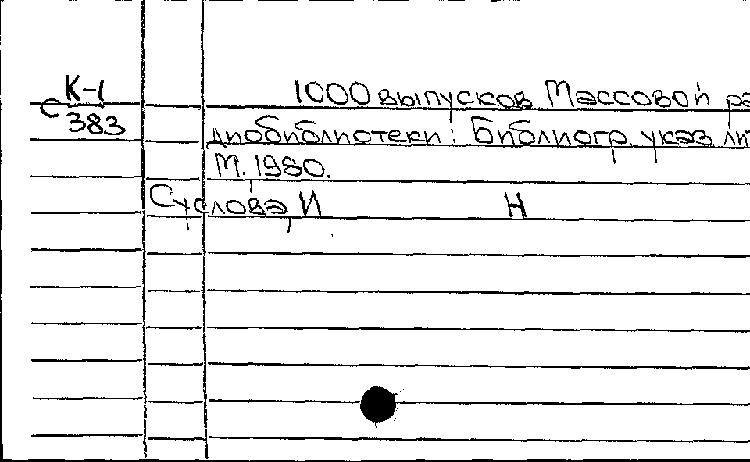 К-1
С 383
1000 выпусков Массовой ра
диобиблиотеки: Библиогр указ ли
М. 1980.
Суслова, И Н